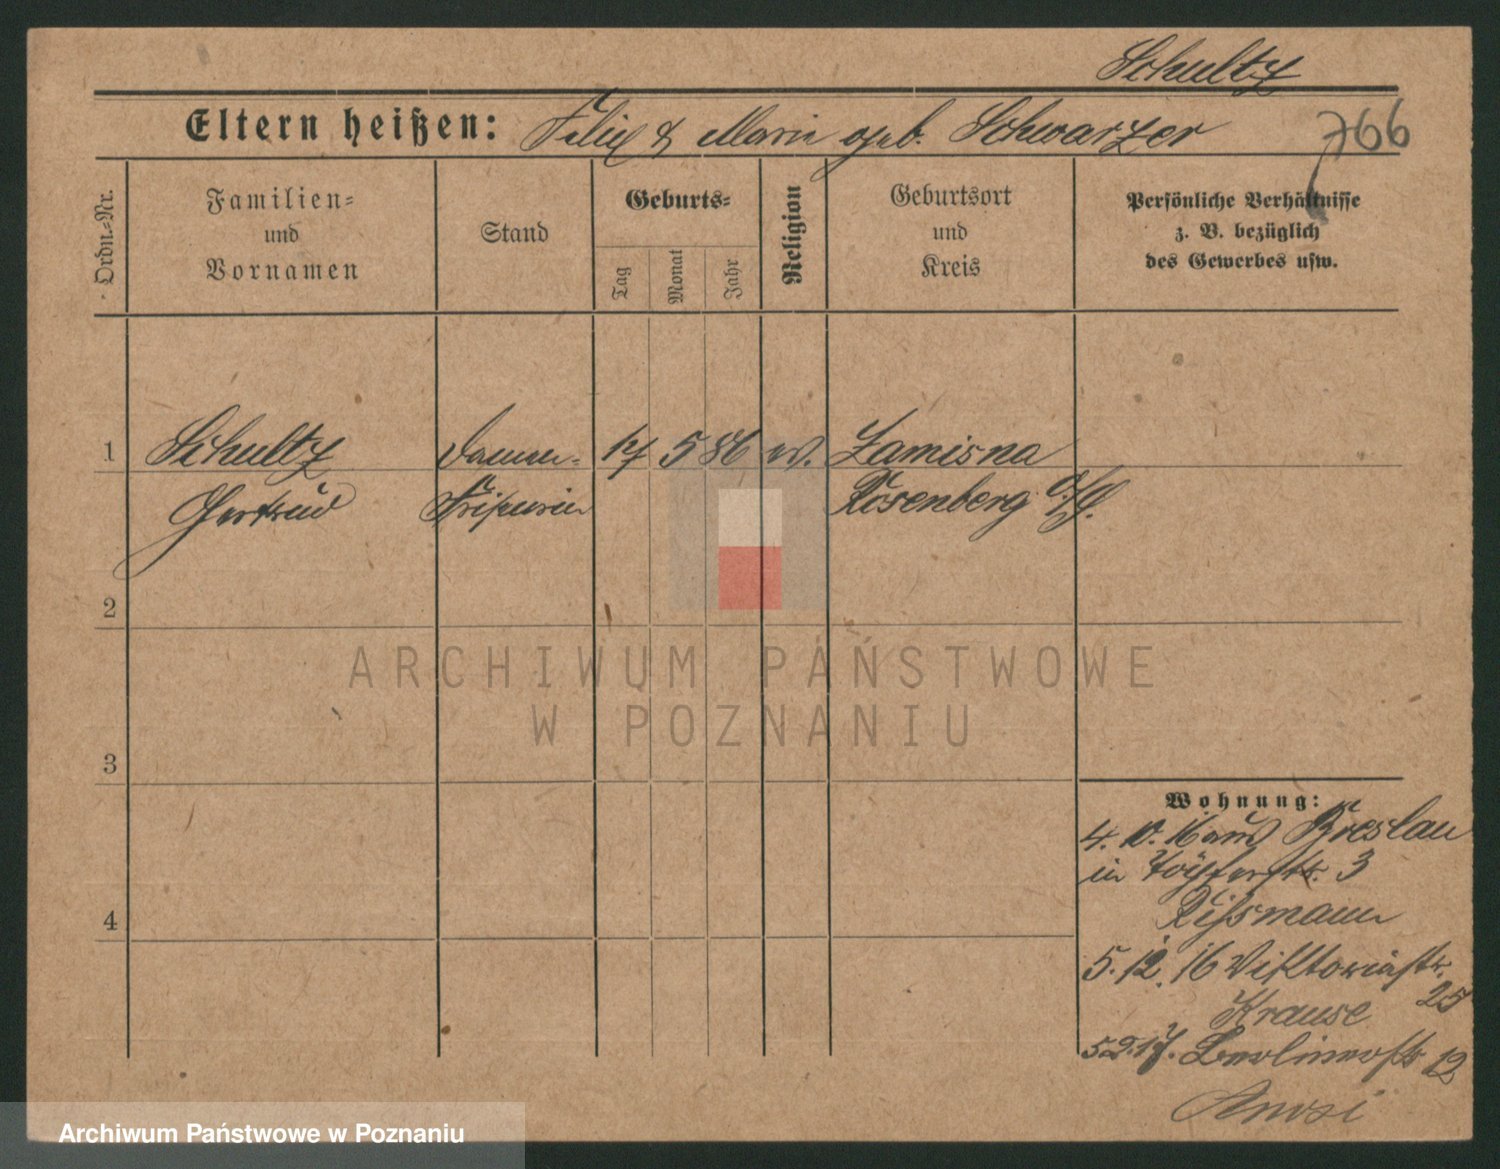 Schultz
Eltern heißen: Felix & Marie geb. Schwarzer
766
Ordn.=Nr.
Familien=
und
Vornamen
Stand
Geburts=
Tag
Monat
Jahr
Religion
Geburtsort
und
Kreis
Persönliche Verhältnisse
z. B. bezüglich
des Gewerbes usw.
1 Schultz Damen= 17 5 86 Zamisna
Gertrud Friseurin Rosenberg O/S.
2
ARCHIWUM PAŃSTWOWE
W POZNANIU
3
Wohnung:
4. 10. 16 aus Breslau
in Töpferstr. 3
Rissmann
4
5. 12. 16 Viktoriastr.
25
Krause
5.2.17. Berlinerstr 12
Archiwum Państwowe w Poznaniu